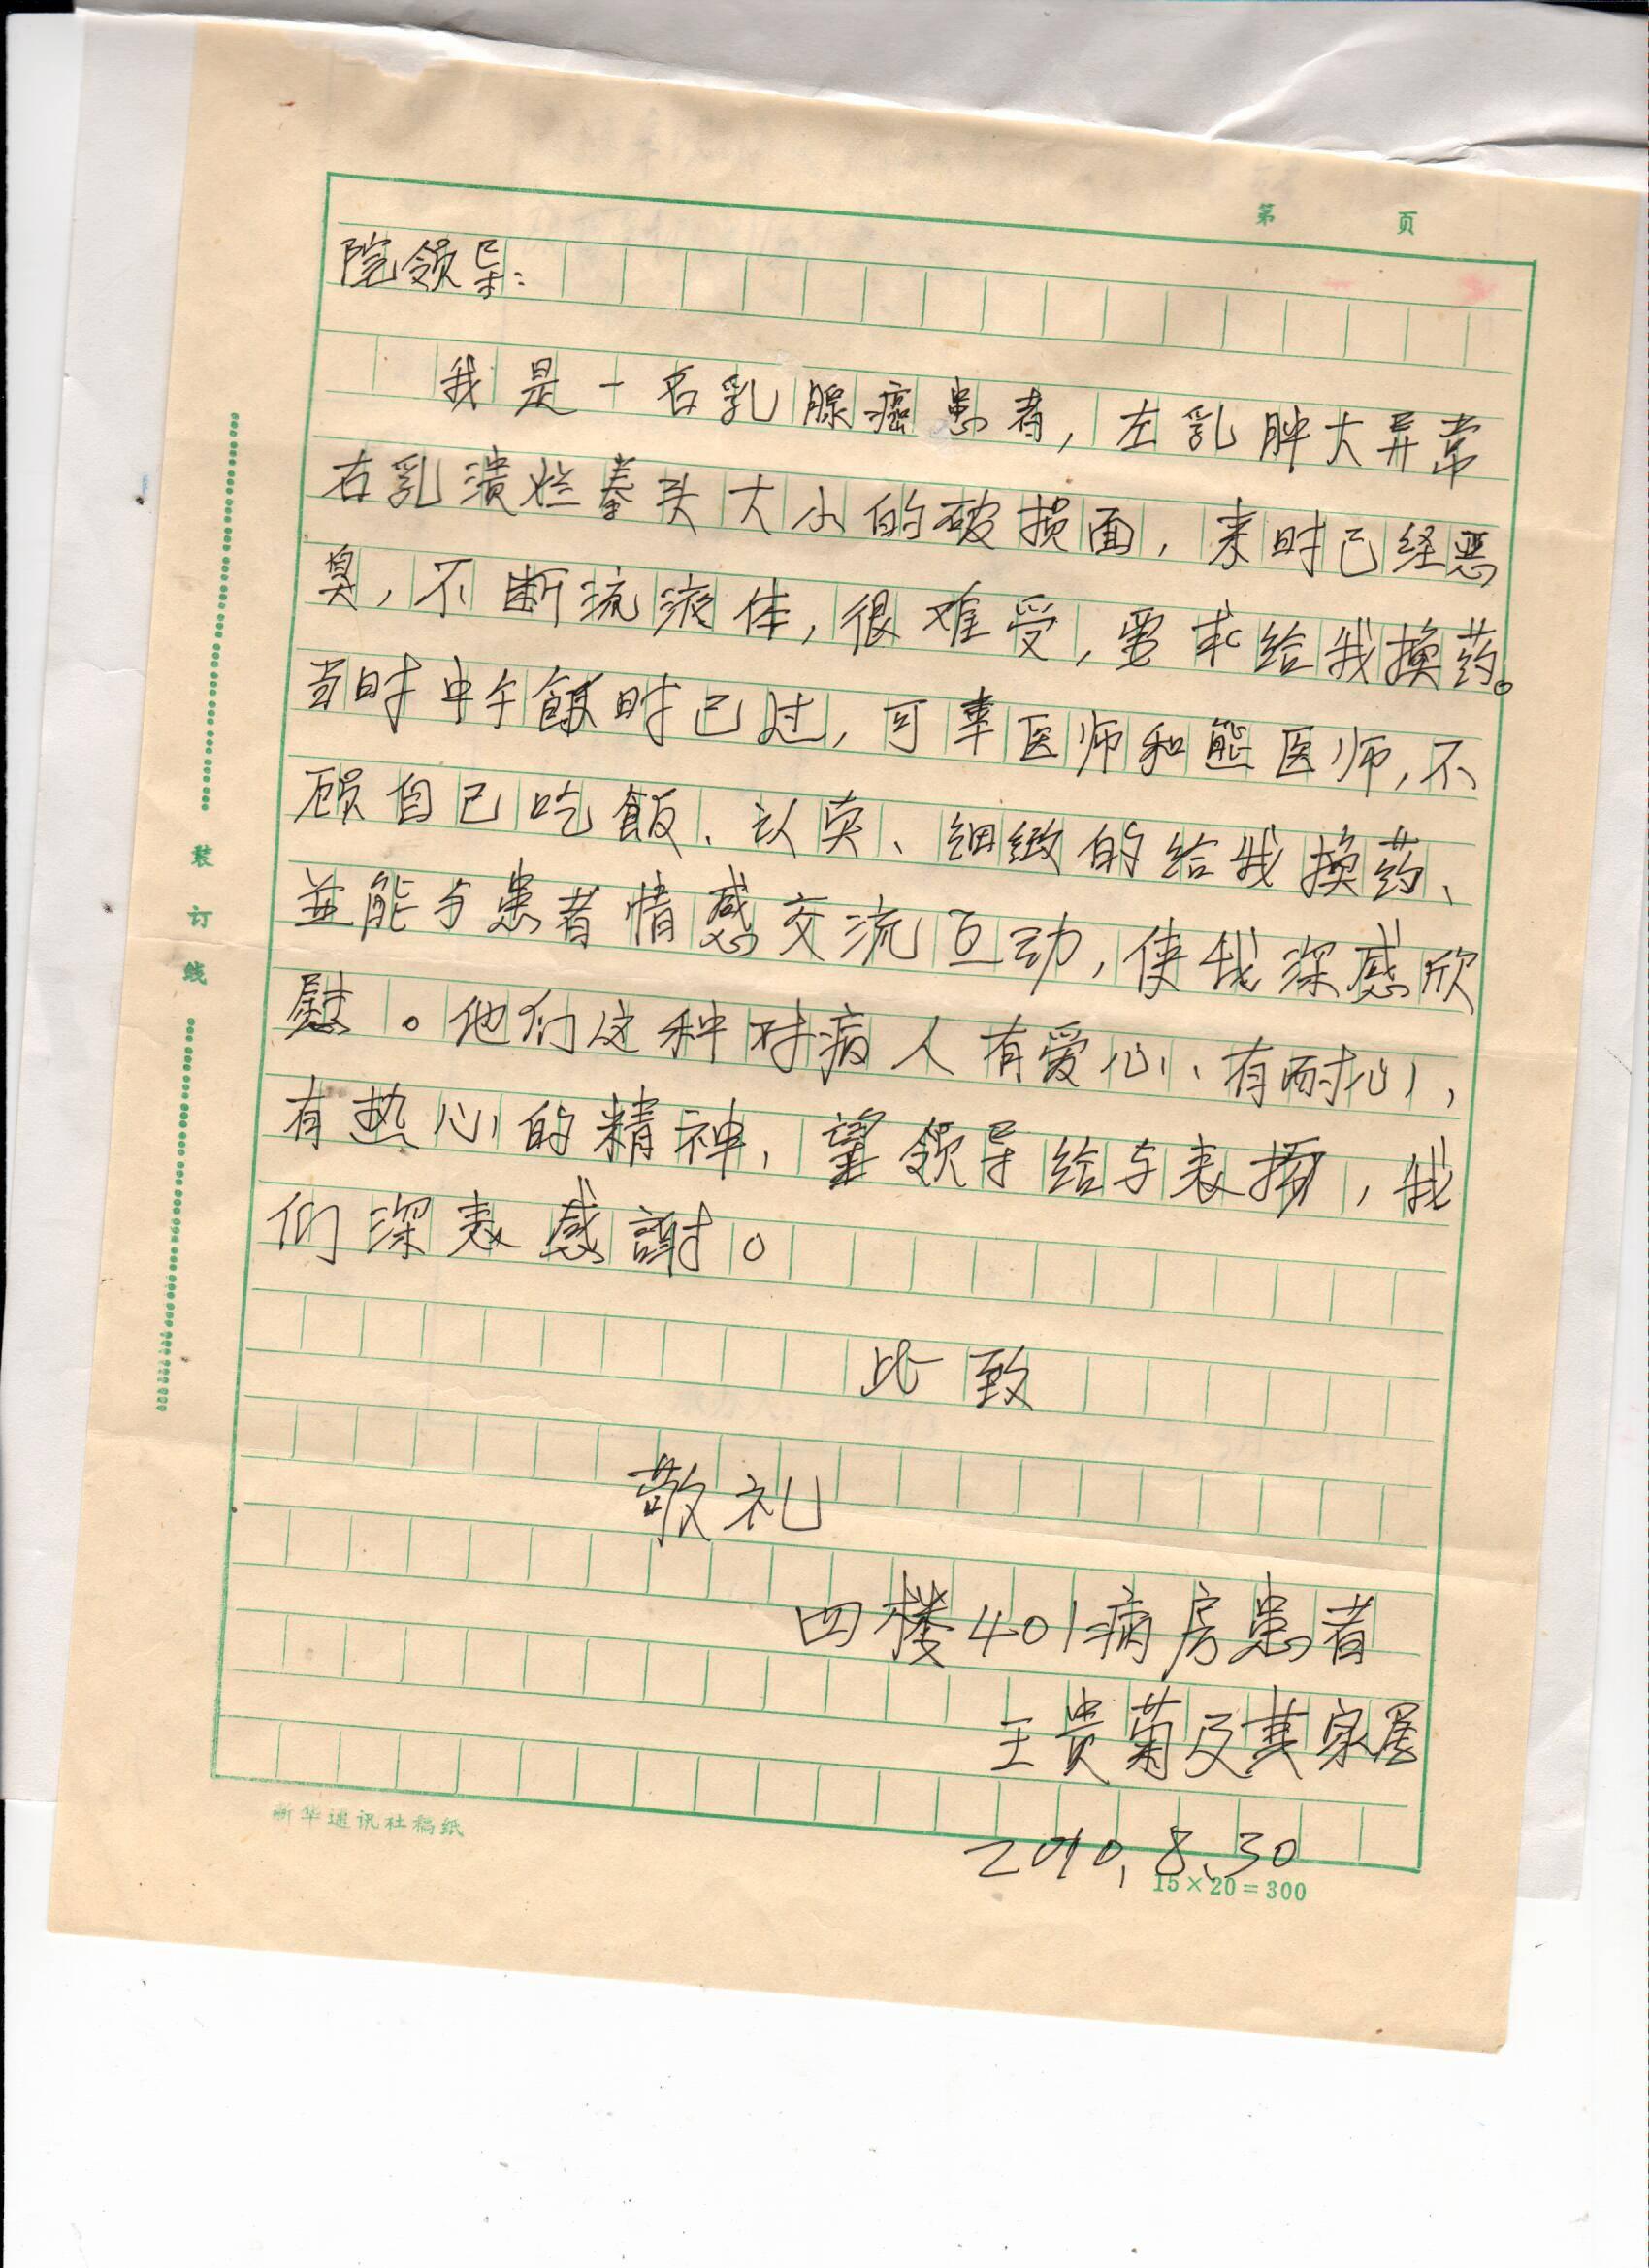 第 页
院领导:
我是一名乳腺癌患者,左乳肿大异常
右乳溃烂拳头大小的破损面,来时已经恶
臭,不断流液体,很难受,要求给我换药。
当时中午饭时已过,可率医师和熊医师,不
顾自己吃飯、认真、细緻的给我换药、
並能与患者情感交流互动,使我深感欣
慰。他们这种对病人有爱心、有耐心,
有热心的精神,望领导给与表扬,我
们深表感謝。
此致
敬礼
四楼401病房患者
王贵菊及其家属
2010.8.30
装订线
新华通讯社稿纸
15×20=300